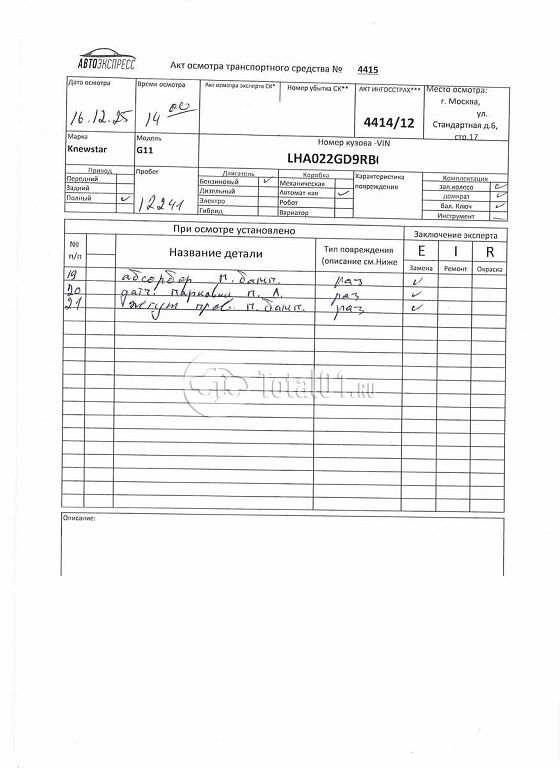 АВТОЭКСПРЕСС
Акт осмотра транспортного средства № 4415
Дата осмотра
16.12.25
Время осмотра
14 00
Акт осмотра эксперта СК*
Номер убытка СК**
АКТ ИНГОССТРАХ***
4414/12
Место осмотра:
г. Москва,
ул.
Стандартная д.6,
стр.17
Марка
Knewstar
Модель
G11
Номер кузова -VIN
LHA022GD9RBI
Привод
Передний
Задний
Полный ✓
Пробег
12241
Двигатель
Бензиновый ✓
Дизельный
Электро
Гибрид
Коробка
Механическая
Автомат кая ✓
Робот
Вариатор
Характеристика
повреждения
Комплектация
зап.колесо ✓
домкрат ✓
бал. Ключ ✓
Инструмент —
При осмотре установлено
Заключение эксперта
№
п/п
Название детали
Тип повреждения
(описание см.Ниже
E I R
Замена Ремонт Окраска
19 абсорбер п. бамп. раз ✓
20 датч. парковки п. Л. раз ✓
21 жгут пров. п. бамп. раз ✓
Total01.RU
Описание: